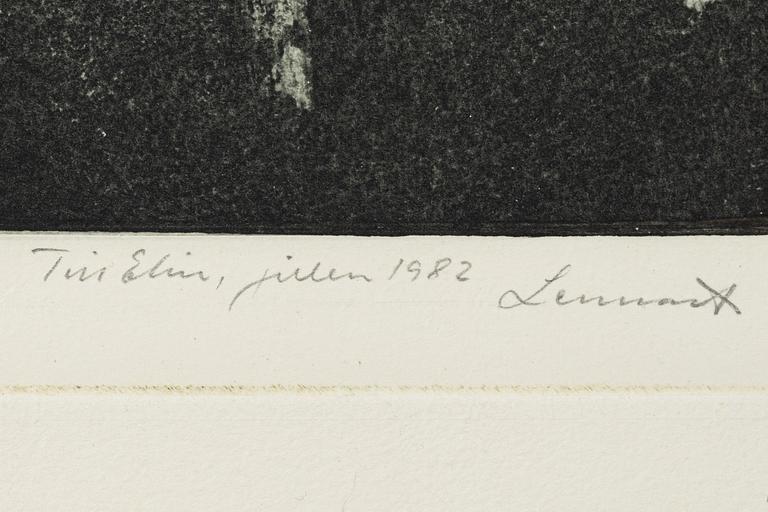 Till Elin, julen 1982
Lennart